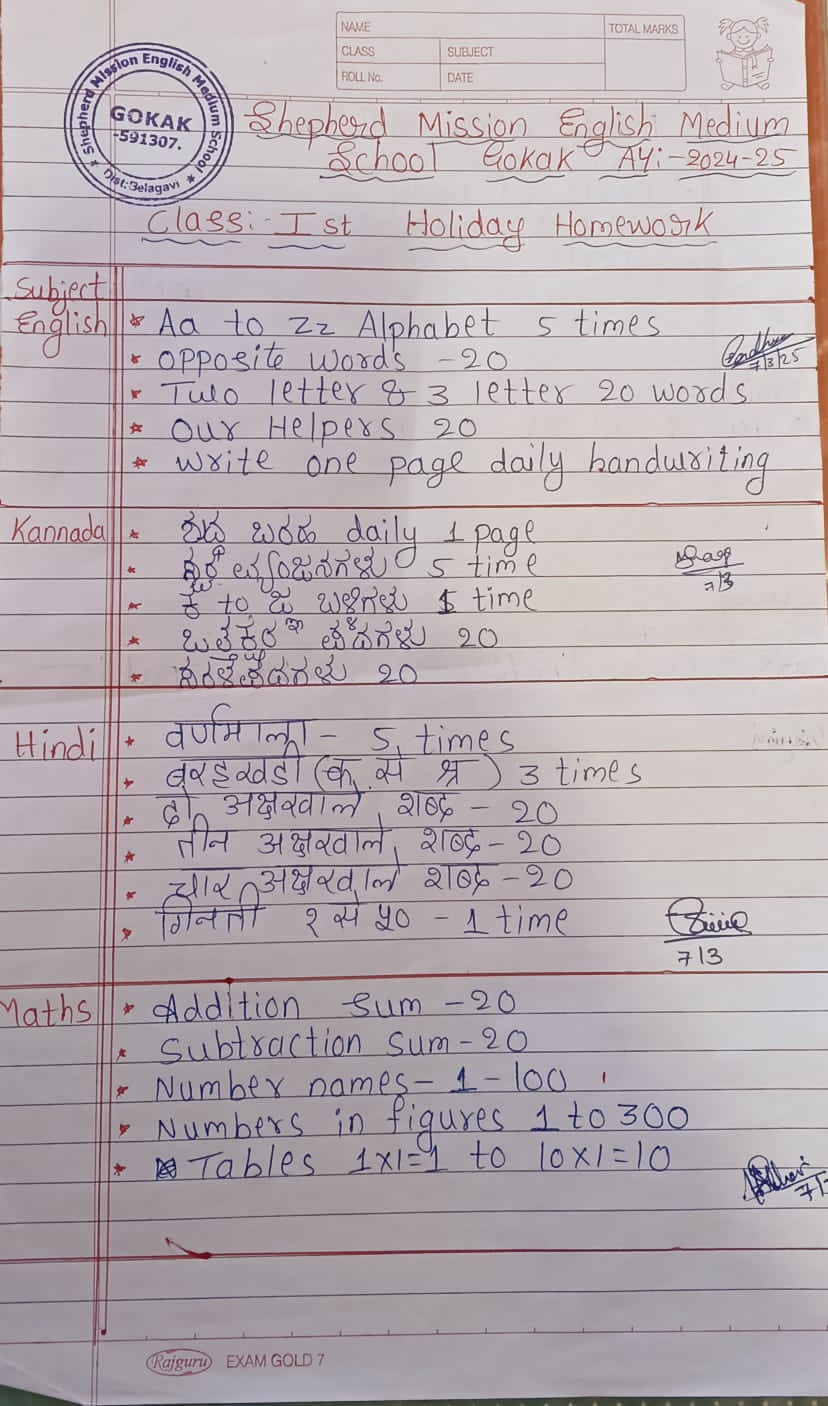 NAME
TOTAL MARKS
CLASS
SUBJECT
ROLL No.
DATE
Shepherd Mission English Medium School
GOKAK
-591307.
Dist:Belagavi
Shepherd Mission English Medium
School Gokak AY:-2024-25
Class:- Ist Holiday Homework
Subject
English
* Aa to Zz Alphabet 5 times
* opposite words -20
7/3/25
* Two letter & 3 letter 20 words
* Our Helpers 20
* write one page daily handwriting
Kannada
* ಶುದ್ಧ ಬರಹ daily 1 page
* 5 time
7/3
* ಕ to ಜ ಬಳ್ಳಿಗಳು 1 time
* 20
* 20
Hindi
* वर्णमाला - 5 times
* बारहखडी (क से श्र) 3 times
* दो अक्षरवाले शब्द - 20
* तीन अक्षरवाले शब्द - 20
* चार अक्षरवाले शब्द - 20
* गिनती १ से ५० - 1 time
7/3
Maths
* Addition Sum -20
* Subtraction Sum - 20
* Number names- 1 - 100
* Numbers in figures 1 to 300
* Tables 1x1=1 to 10x1=10
Rajguru EXAM GOLD 7